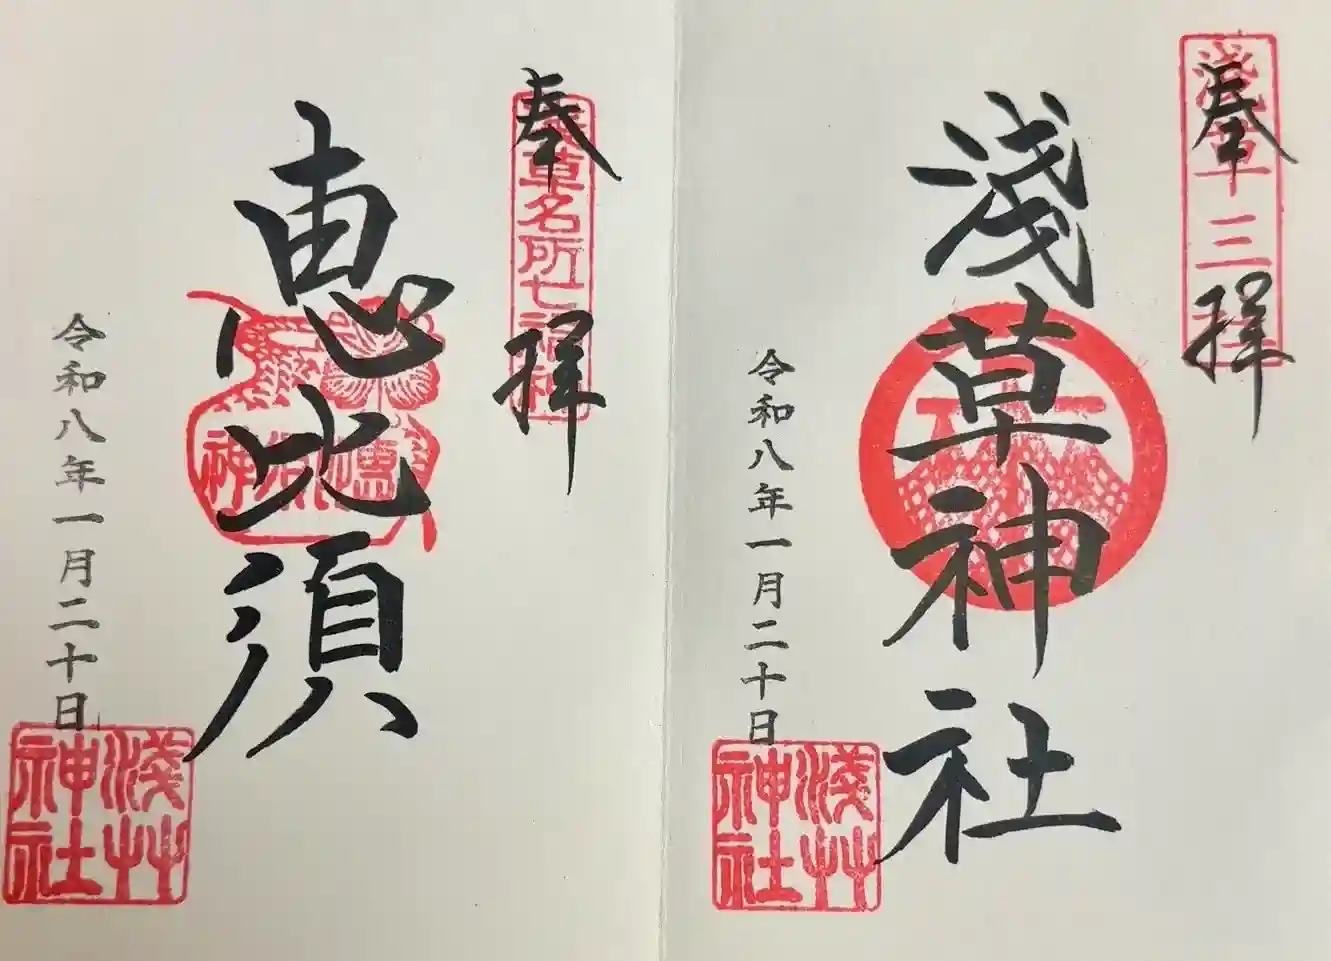 奉拝
浅草三社
淺草神社
令和八年一月二十日
淺艸
神社
奉拝
浅草名所七福神
恵比須
令和八年一月二十日
淺艸
神社